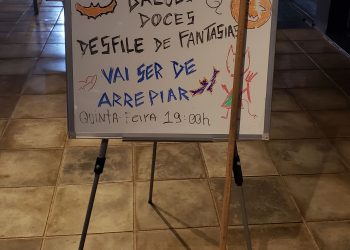 BALÕES
DOCES
DESFILE DE FANTASIAS
VAI SER DE
ARREPIAR
QUINTA-FEIRA 19:00h